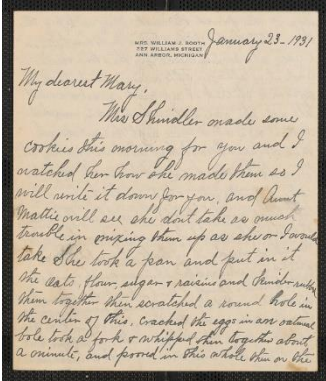 MRS. WILLIAM J. BOOTH
727 WILLIAMS STREET
ANN ARBOR, MICHIGAN
January 23 - 1931
My dearest Mary,
Mrs Shindler made some
cookies this morning for you and I
watched her how she made them so I
will write it down for you, and Aunt
Mattie will see she dont take as much
trouble in mixing them up as she or I would
take She took a pan and put in it
the oats, flour, sugar + raisins and
them together then scratched a round hole in
the center of this, cracked the eggs in an oatmeal
bole took a fork + whipped them together about
a minute, and poored in this whole then the